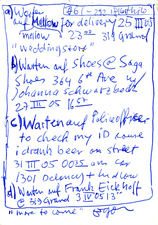 a) Warten
auf Mellow for delivery 25 III 05
"mellow" 23 00 319 Grand
"Weddingstore"
b) Warten auf Shoes @ Saga
Shoes 364 6th Ave w/
Johanna Schwarzbeck
27 III 05 16
c) Warten auf Policeofficer
to check my ID cause
i drank beer on street
31 III 05 0025 am car
1301 Delancy + Ludlow
d) Warten auf Frank Eickhoff
@ 319 Grand 3 IV 05 13
"more to come"